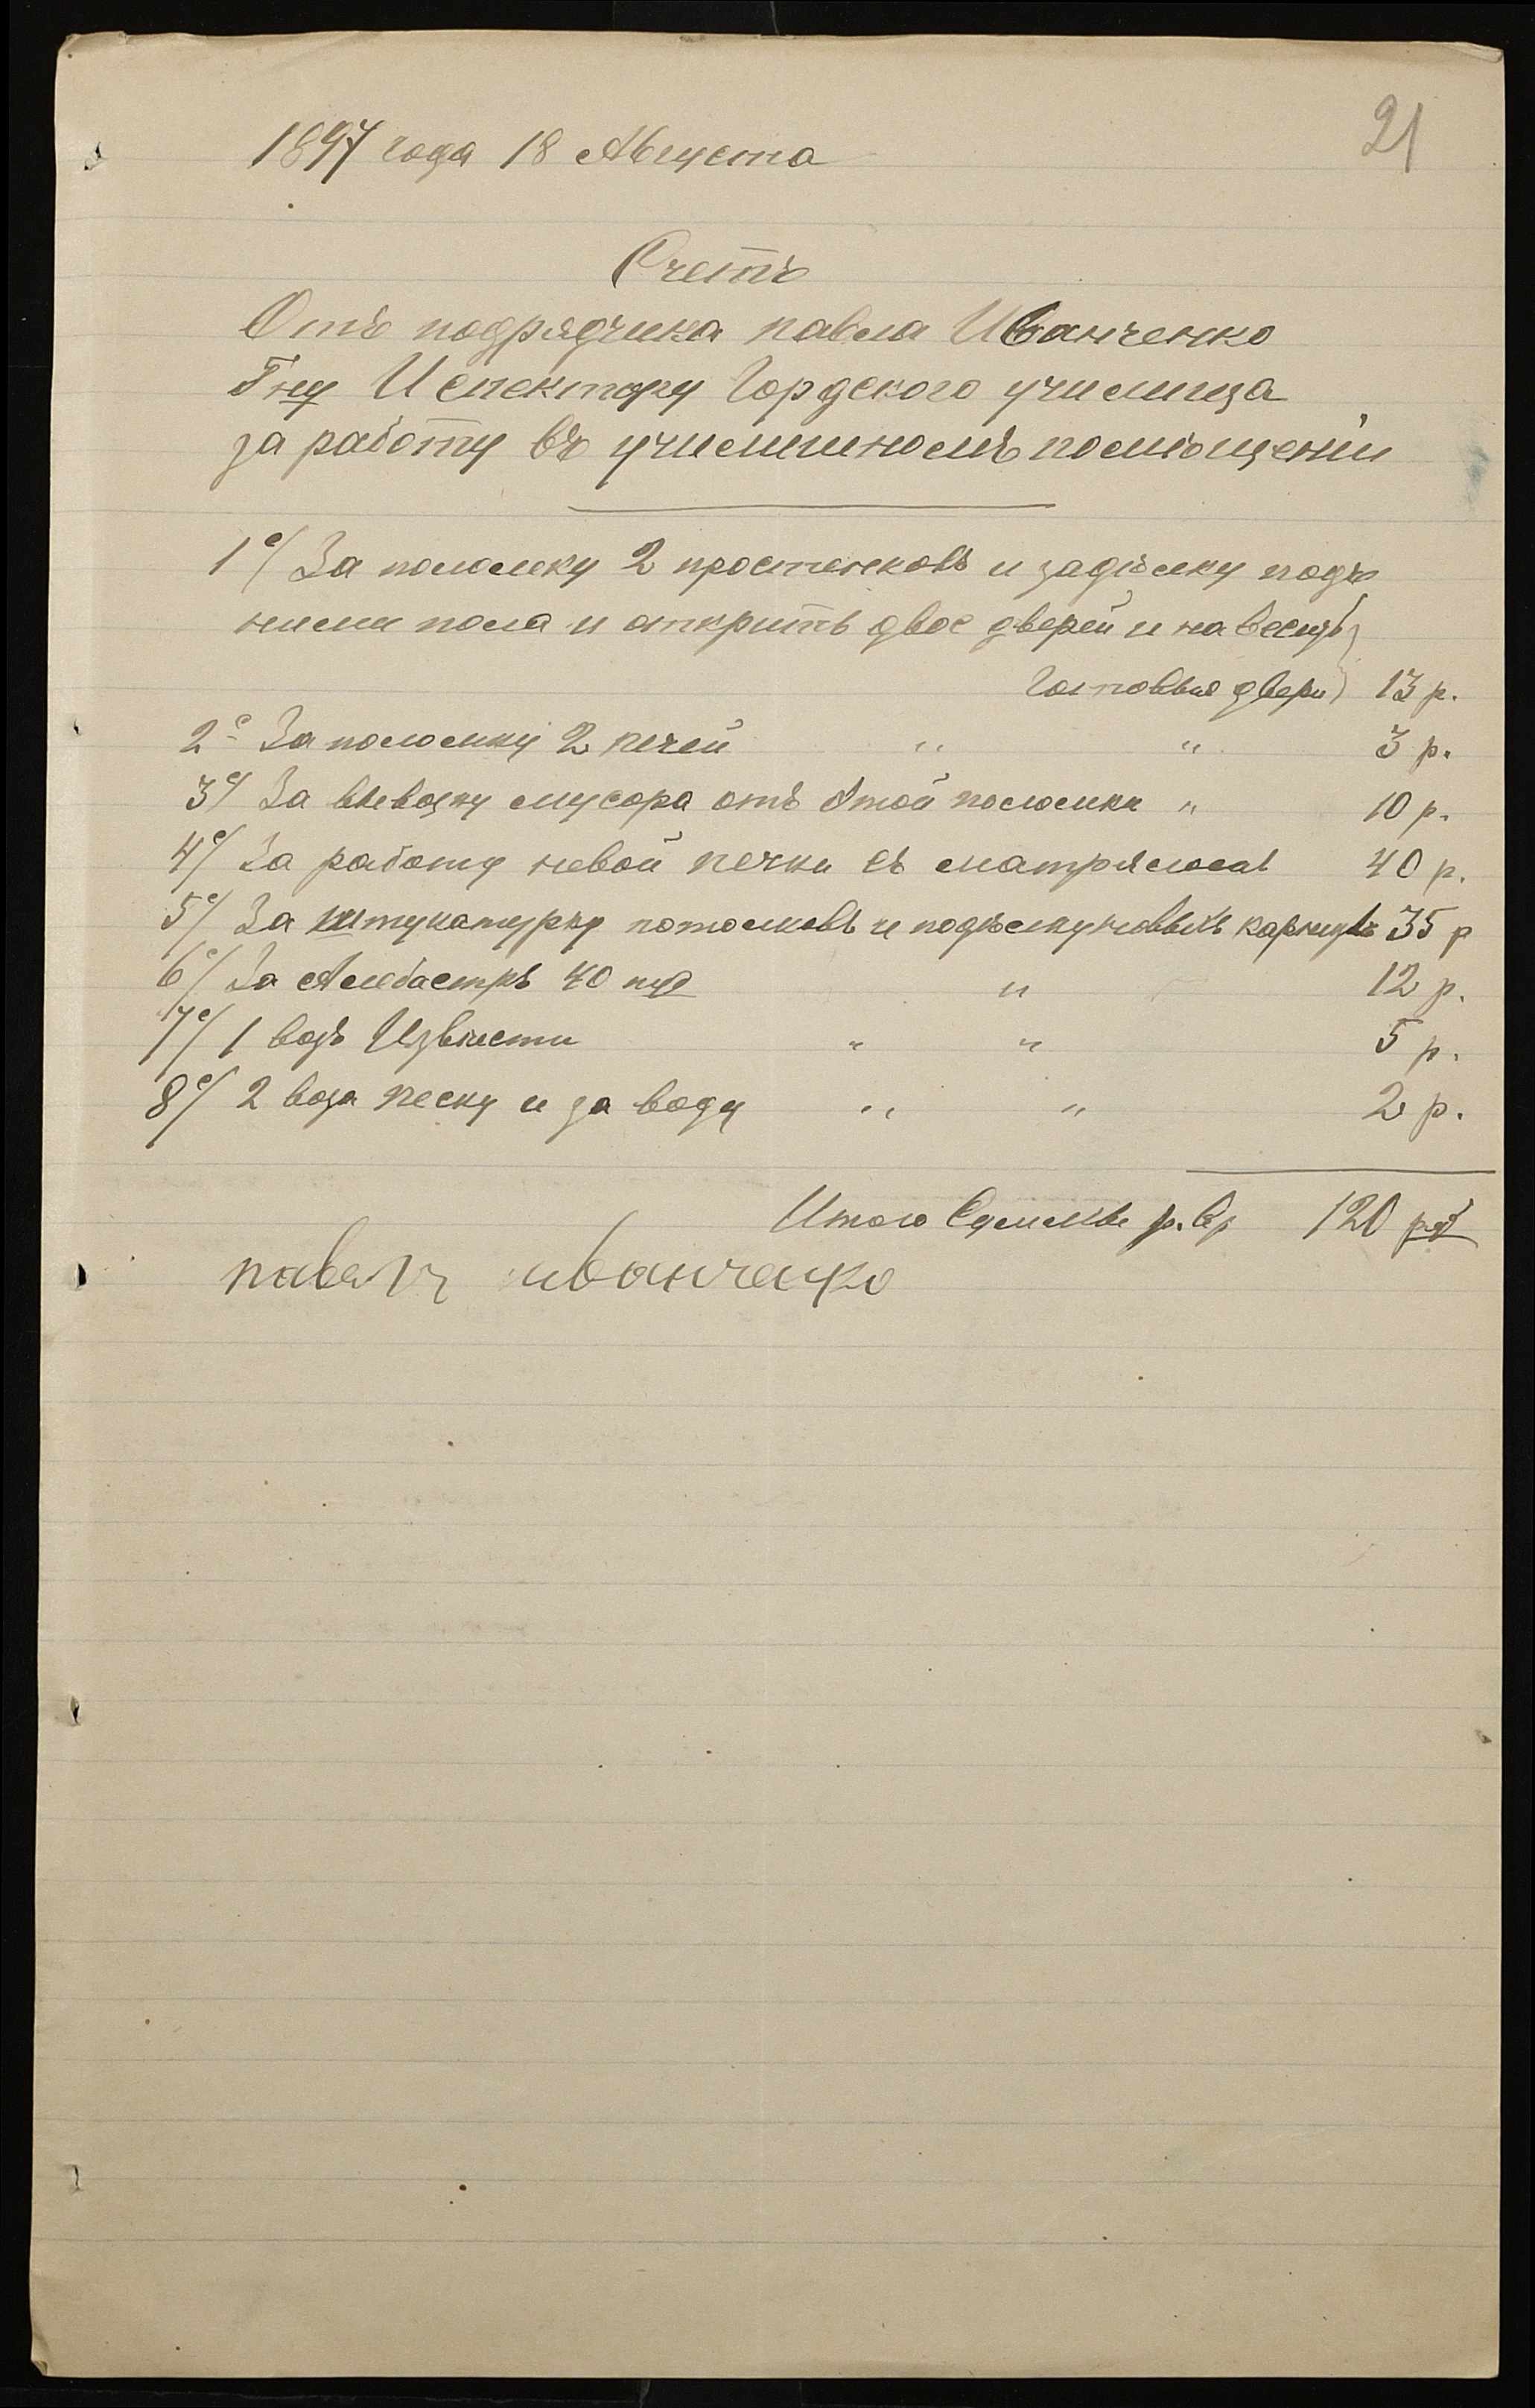 21
1897 года 18 Августа
Счетъ
Отъ подрядчика павла Иванченко
Гну Испектору Гордского училища
за работу въ училишномъ помѣщеніи
1е/ За поломку 2 простенковъ и задѣлку подъ
ними пола и открить двое дверей и навесить
Готовыя двери 13 р.
2е За поломку 2 печей " " 3 р.
3е/ За вывозку мусора отъ Этой поломки " 10 р.
4е/ За работу новой печки съ матряломъ 40 р.
5е/ За штукатурку потолковъ и подѣлку новыхъ карнизъ 35 р
6е/ За Алебастръ 40 пуд " 12 р.
7е/ 1 возъ Извѣсти " " 5 р.
8е/ 2 воза песку и за воду " " 2 р.
Итого Суммы 120 руб
павелъ иванченко